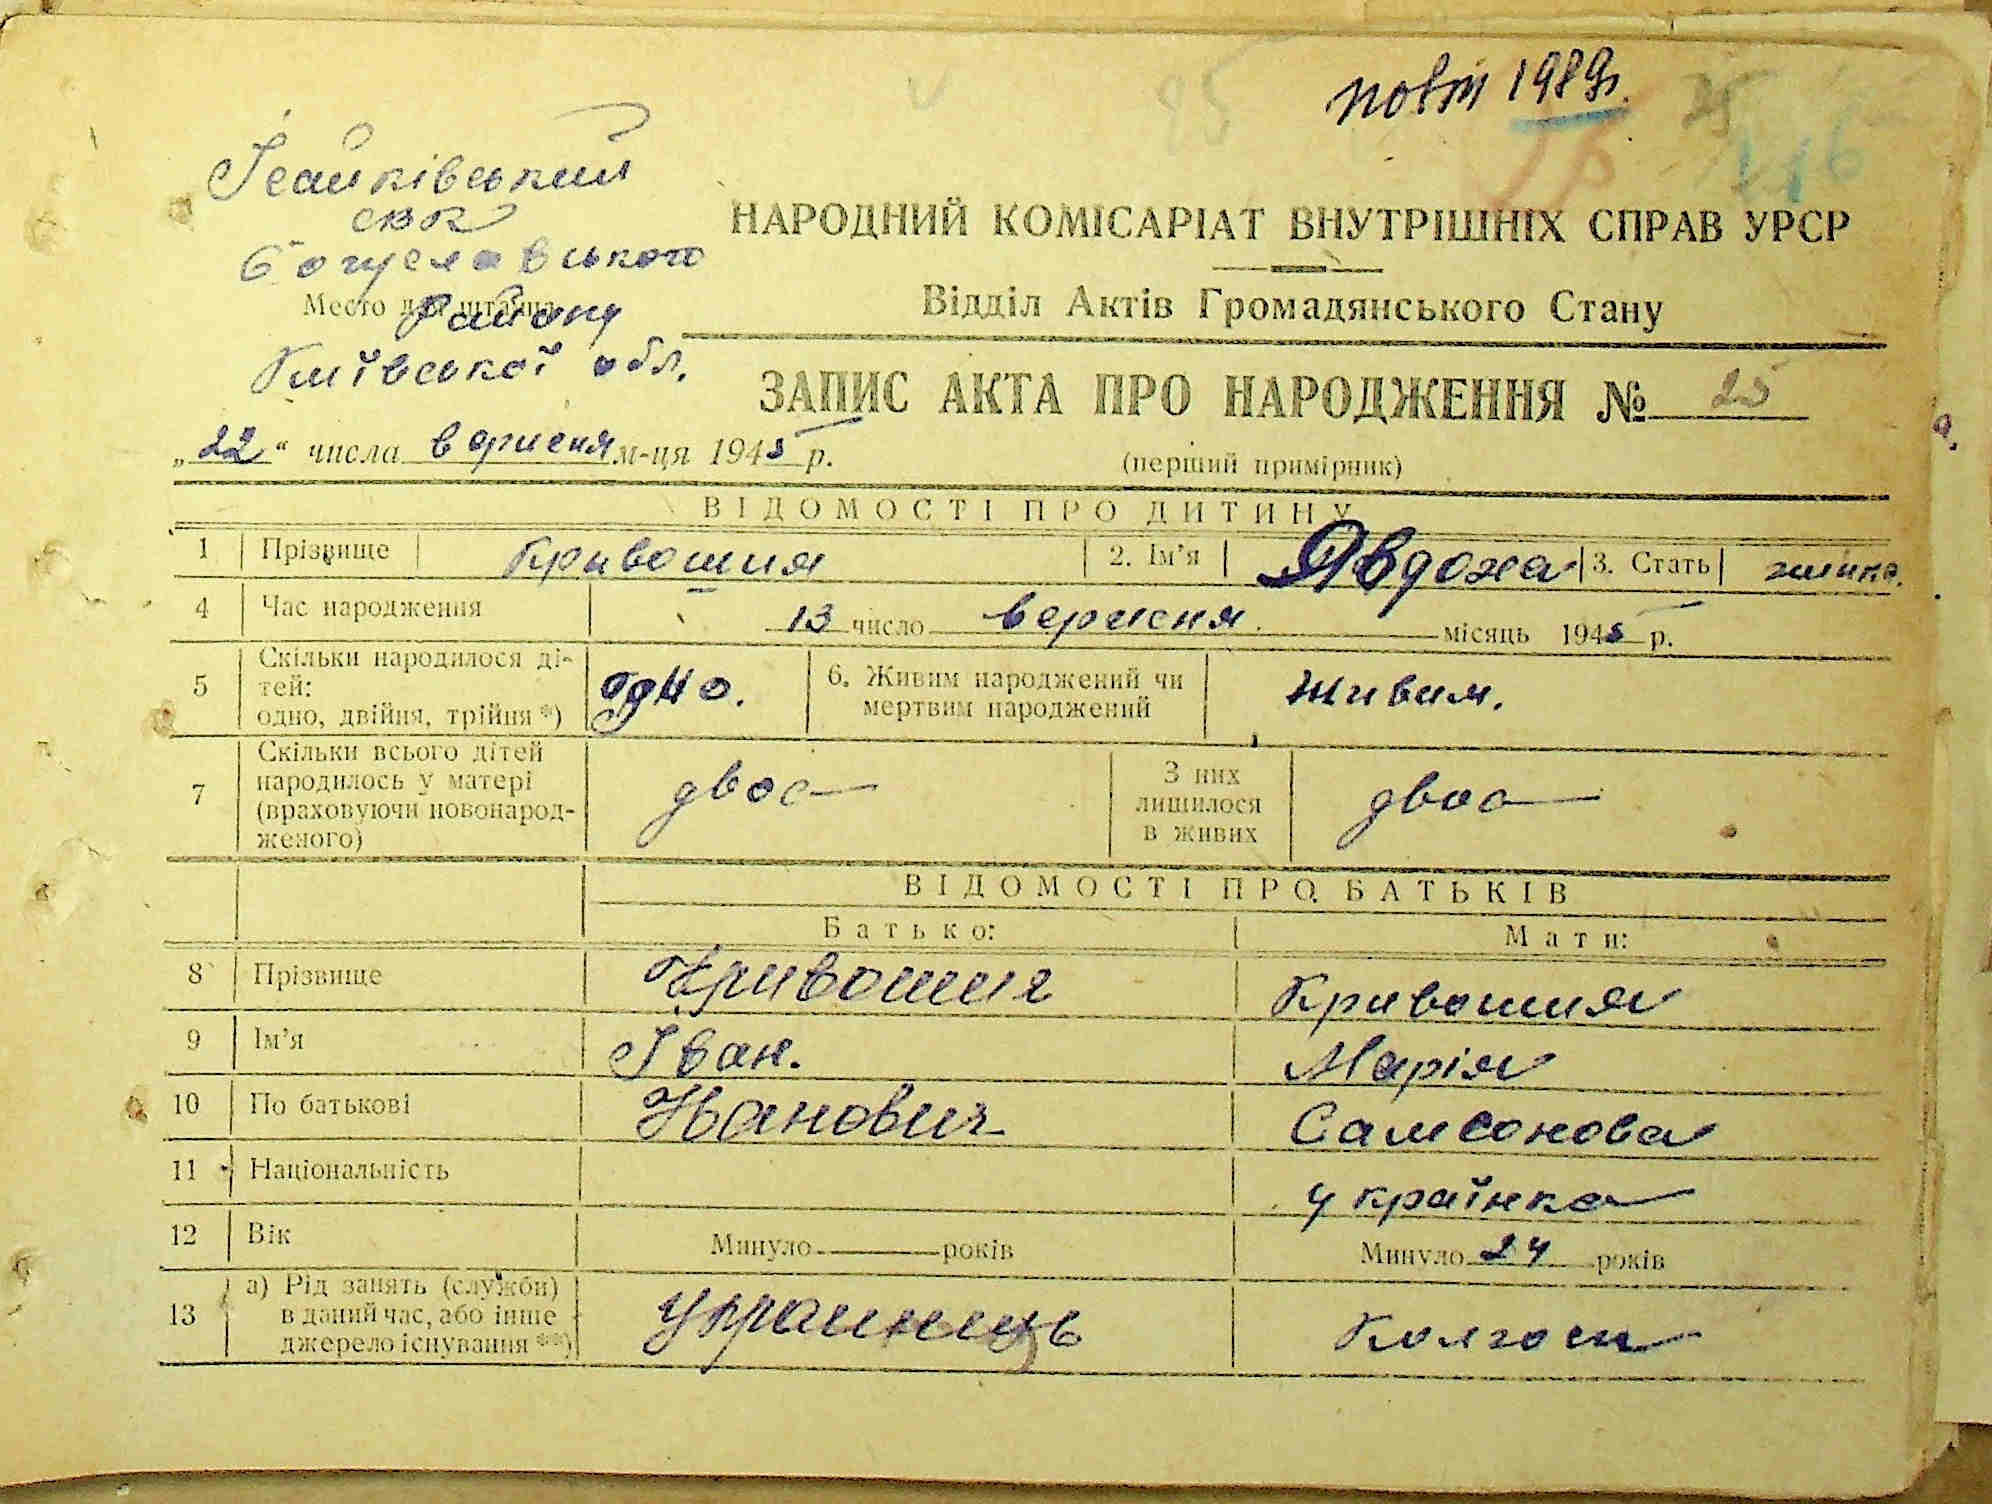 повт 1989р.
25
116
Ісайківський
Богуславського
Место для штампа
району
Київської обл.
НАРОДНИЙ КОМІСАРІАТ ВНУТРІШНІХ СПРАВ УРСР
Відділ Актів Громадянського Стану
ЗАПИС АКТА ПРО НАРОДЖЕННЯ № 25
„22“ числа вересня м-ця 1945 р.
(перший примірник)
ВІДОМОСТІ ПРО ДИТИНУ
1 Прізвище Кривошия 2. Ім'я Явдоха 3. Стать жінка.
4 Час народження 13 число вересня місяць 1945 р.
5 Скільки народилося ді-
тей:
одно, двійня, трійня*) одно.
6. Живим народжений чи
мертвим народжений живим.
7 Скільки всього дітей
народилось у матері
(враховуючи новонарод-
женого) двоє
З них
лишилося
в живих двоє
ВІДОМОСТІ ПРО БАТЬКІВ
Батько: Мати:
8 Прізвище Кривошия Кривошия
9 Ім'я Іван. Марія
10 По батькові Іванович Самсонова
11 Національність українка
12 Вік Минуло років Минуло 24 років
13 а) Рід занять (служби)
в даний час, або інше
джерело існування**) українець Колгосп